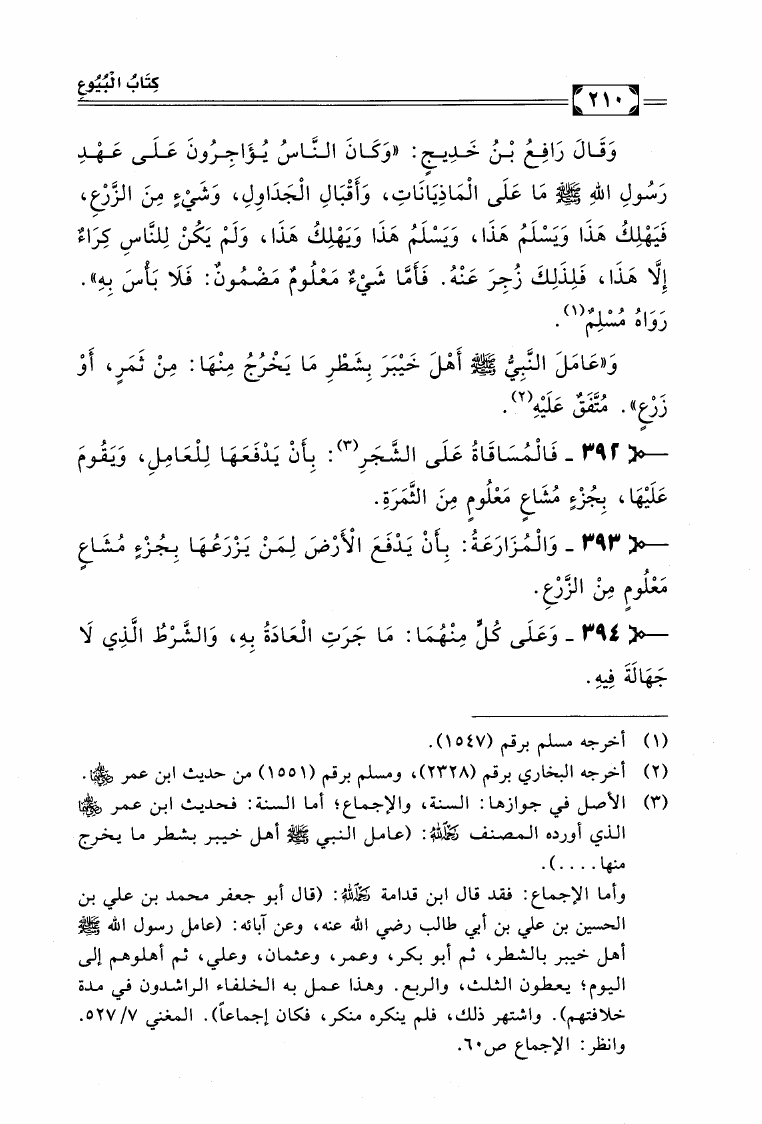 كِتَابُ الْبُيُوعِ
٢١٠
وَقَالَ رَافِعُ بْنُ خَدِيجٍ: «وَكَانَ النَّاسُ يُؤَاجِرُونَ عَلَى عَهْدِ
رَسُولِ اللهِ ﷺ مَا عَلَى الْمَاذِيَانَاتِ، وَأَقْبَالِ الْجَدَاوِلِ، وَشَيْءٍ مِنَ الزَّرْعِ،
فَيَهْلِكُ هَذَا وَيَسْلَمُ هَذَا، وَيَسْلَمُ هَذَا وَيَهْلِكُ هَذَا، وَلَمْ يَكُنْ لِلنَّاسِ كِرَاءٌ
إِلَّا هَذَا، فَلِذَلِكَ زُجِرَ عَنْهُ. فَأَمَّا شَيْءٌ مَعْلُومٌ مَضْمُونٌ: فَلَا بَأْسَ بِهِ».
رَوَاهُ مُسْلِمٌ(١).
وَ«عَامَلَ النَّبِيُّ ﷺ أَهْلَ خَيْبَرَ بِشَطْرِ مَا يَخْرُجُ مِنْهَا: مِنْ ثَمَرٍ، أَوْ
زَرْعٍ». مُتَّفَقٌ عَلَيْهِ(٢).
٣٩٢ ـ فَالْمُسَاقَاةُ عَلَى الشَّجَرِ(٣): بِأَنْ يَدْفَعَهَا لِلْعَامِلِ، وَيَقُومَ
عَلَيْهَا، بِجُزْءٍ مُشَاعٍ مَعْلُومٍ مِنَ الثَّمَرَةِ.
٣٩٣ ـ وَالْمُزَارَعَةُ: بِأَنْ يَدْفَعَ الْأَرْضَ لِمَنْ يَزْرَعُهَا بِجُزْءٍ مُشَاعٍ
مَعْلُومٍ مِنْ الزَّرْعِ.
٣٩٤ ـ وَعَلَى كُلٍّ مِنْهُمَا: مَا جَرَتِ الْعَادَةُ بِهِ، وَالشَّرْطُ الَّذِي لَا
جَهَالَةَ فِيهِ.
(١) أخرجه مسلم برقم (١٥٤٧).
(٢) أخرجه البخاري برقم (٢٣٢٨)، ومسلم برقم (١٥٥١) من حديث ابن عمر رضي الله عنهما.
(٣) الأصل في جوازها: السنة، والإجماع؛ أما السنة: فحديث ابن عمر رضي الله عنهما
الذي أورده المصنف رحمه الله: (عامل النبي ﷺ أهل خيبر بشطر ما يخرج
منها....).
وأما الإجماع: فقد قال ابن قدامة رحمه الله: (قال أبو جعفر محمد بن علي بن
الحسين بن علي بن أبي طالب رضي الله عنه، وعن آبائه: (عامل رسول الله ﷺ
أهل خيبر بالشطر، ثم أبو بكر، وعمر، وعثمان، وعلي، ثم أهلوهم إلى
اليوم؛ يعطون الثلث، والربع. وهذا عمل به الخلفاء الراشدون في مدة
خلافتهم). واشتهر ذلك، فلم ينكره منكر، فكان إجماعاً). المغني ٧/ ٥٢٧.
وانظر: الإجماع ص٦٠.